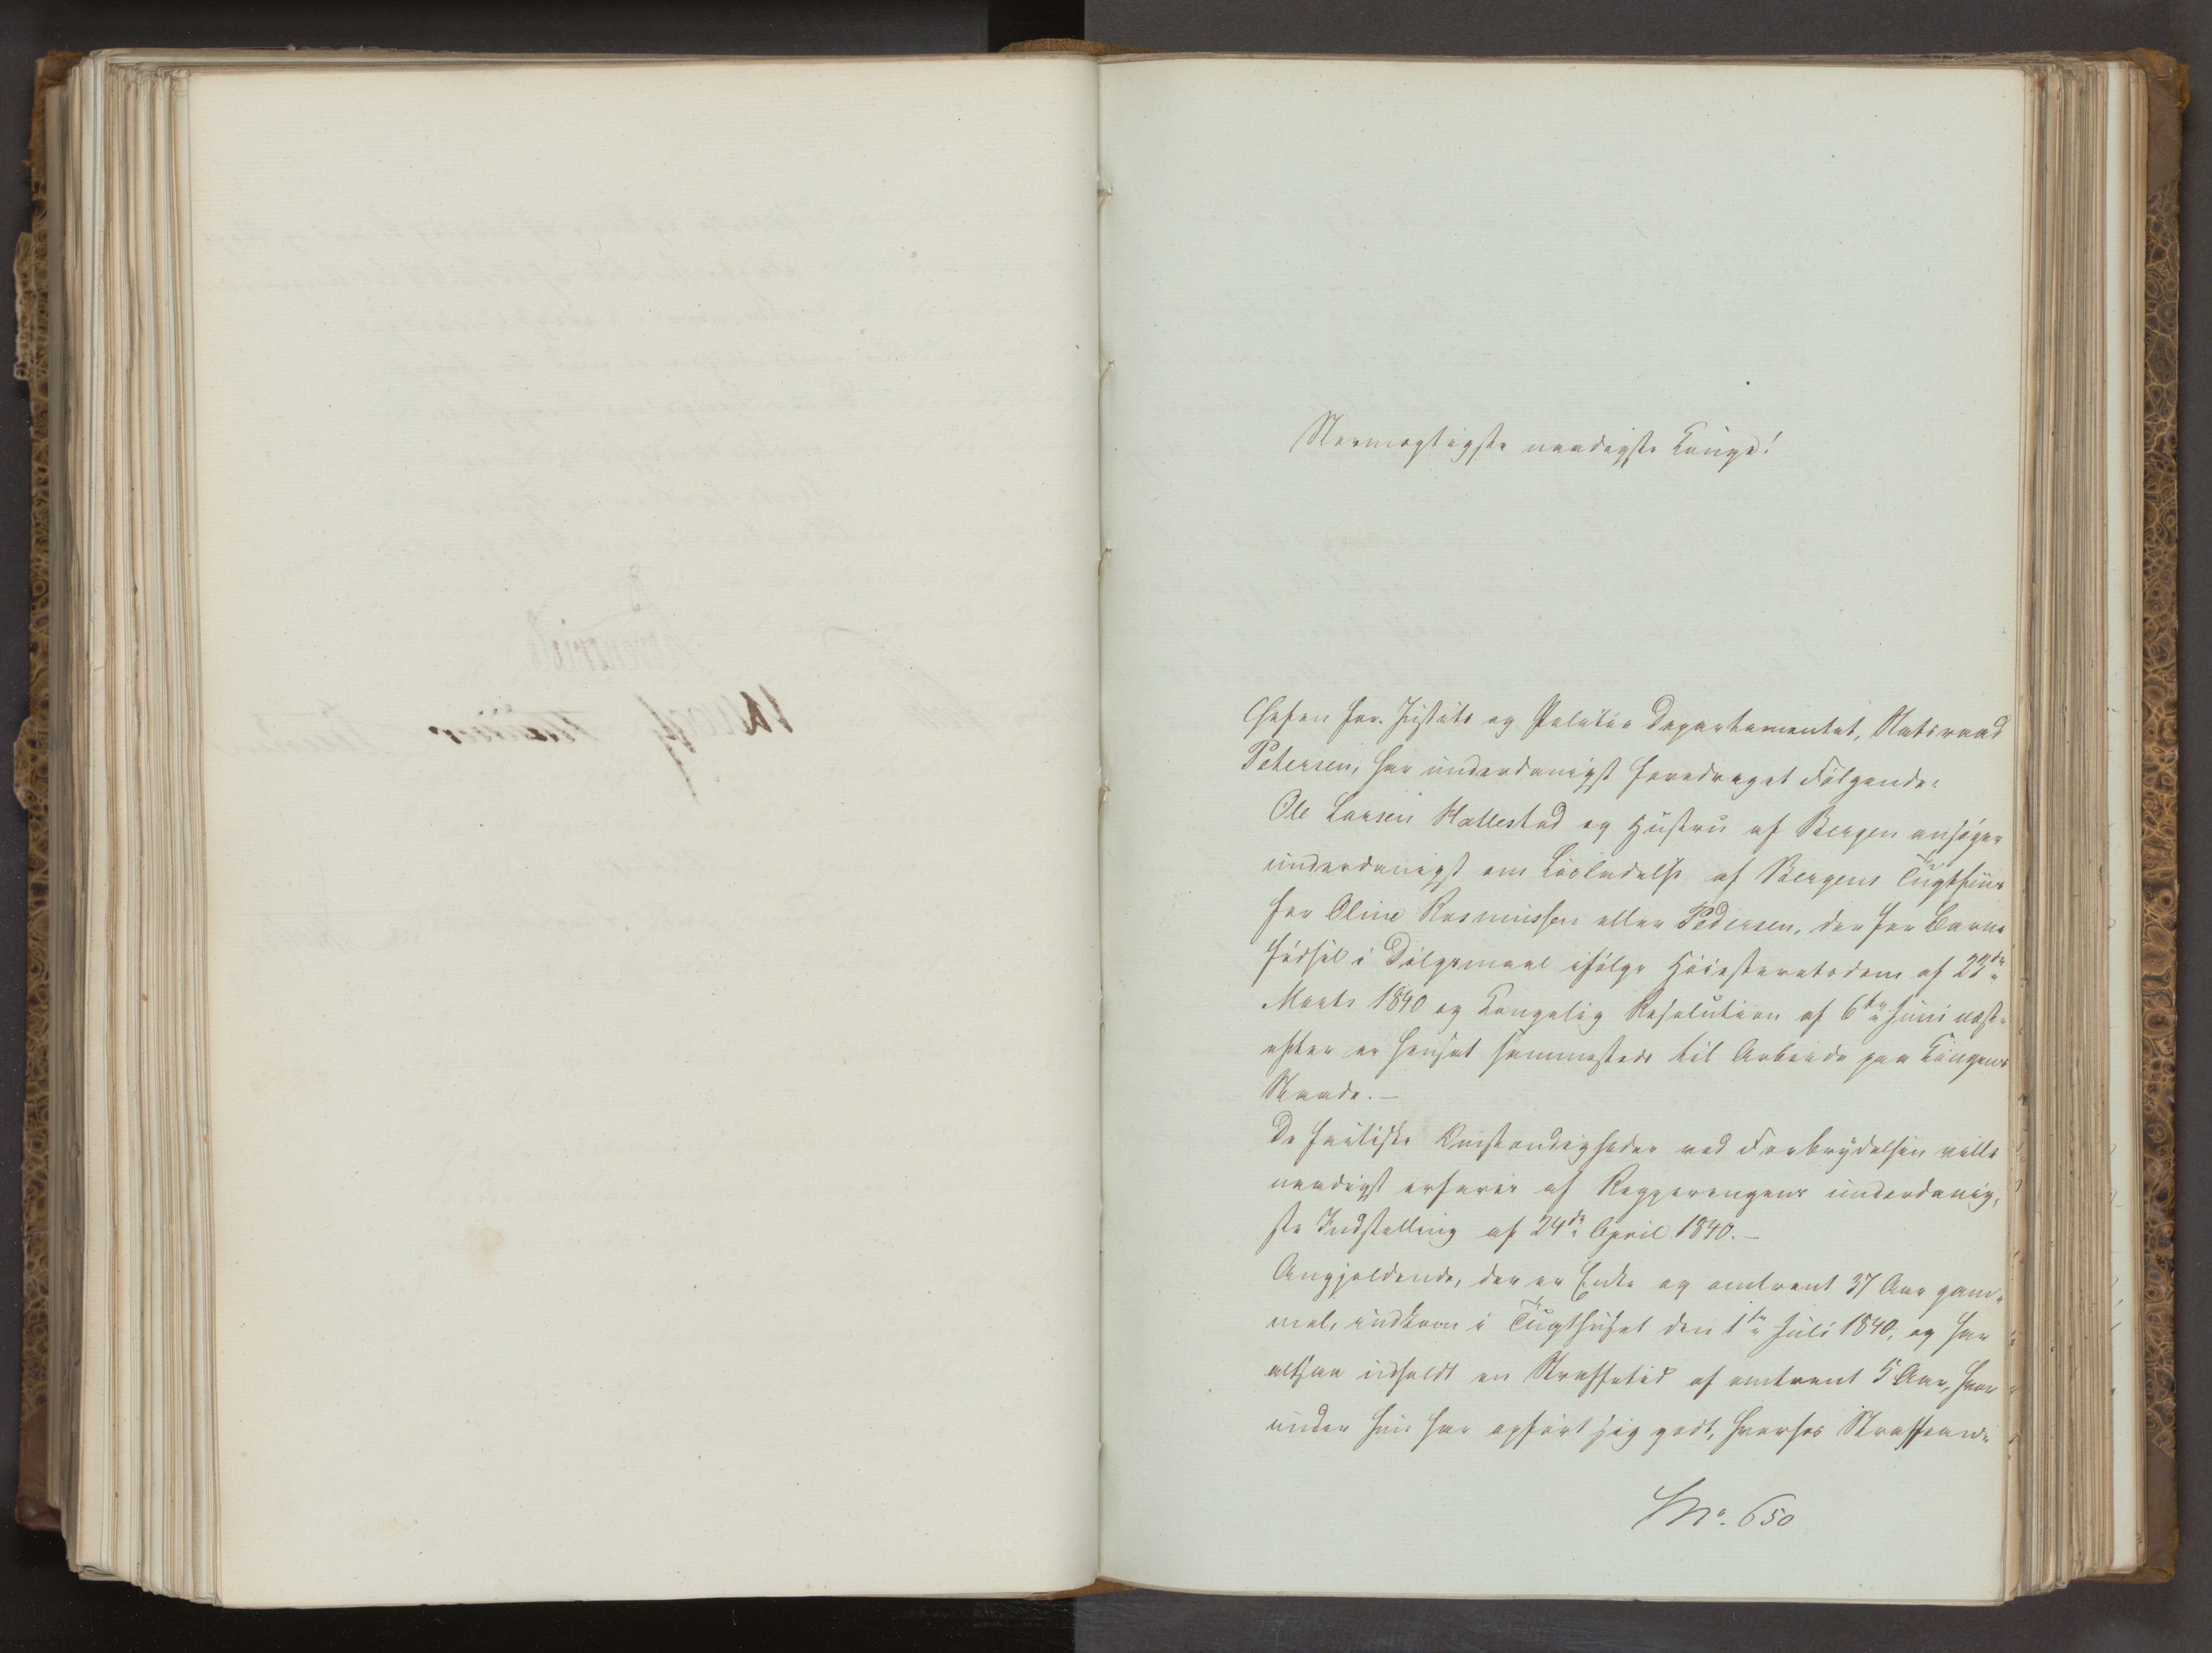 Stormægtigste naadigste Konge!
Chefen for Justits og Politie Departementet, Statsraad
Petersen, har underdanigst foredraget Følgende:
Ole Larsen Hallestad og Hustru af Bergen ansøger
underdanigst om Løsladelse af Bergens Tugthuus
for Oline Rasmussen eller Pedersen, der for Barne
fødsel i Dølgsmaal ifølge Høiesteretsdom af 23de
Marts 1840 og Kongelig Resolution af 6te Juni næst-
efter er hensat sammesteds til Arbeide paa Kongens
Naade.-
De factiske Omstændigheder ved Forbrydelsen ville
naadigst erfares af Regjeringens underdanig-
ste Indstilling af 24de April 1840.-
Angjældende, der er Enke og omtrent 37 Aar gam-
mel, indkom i Tugthuset den 1ste Juli 1840, og har
altsaa udholdt en Straffetid af omtrent 5 Aar, hvor
under hun har opført sig godt, hvorfor Straffean-
No. 650